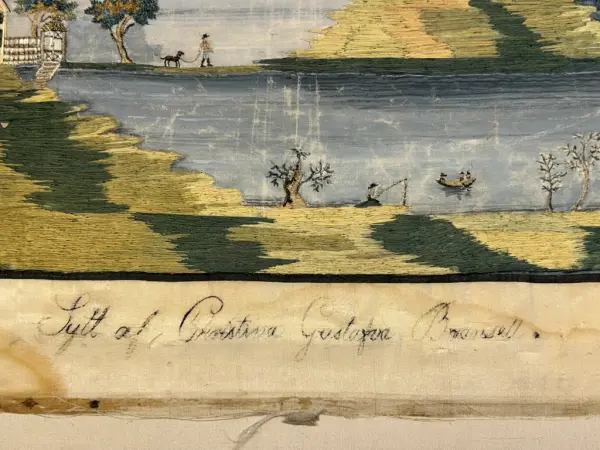 Sytt af, Christina Gustafva Bransell.